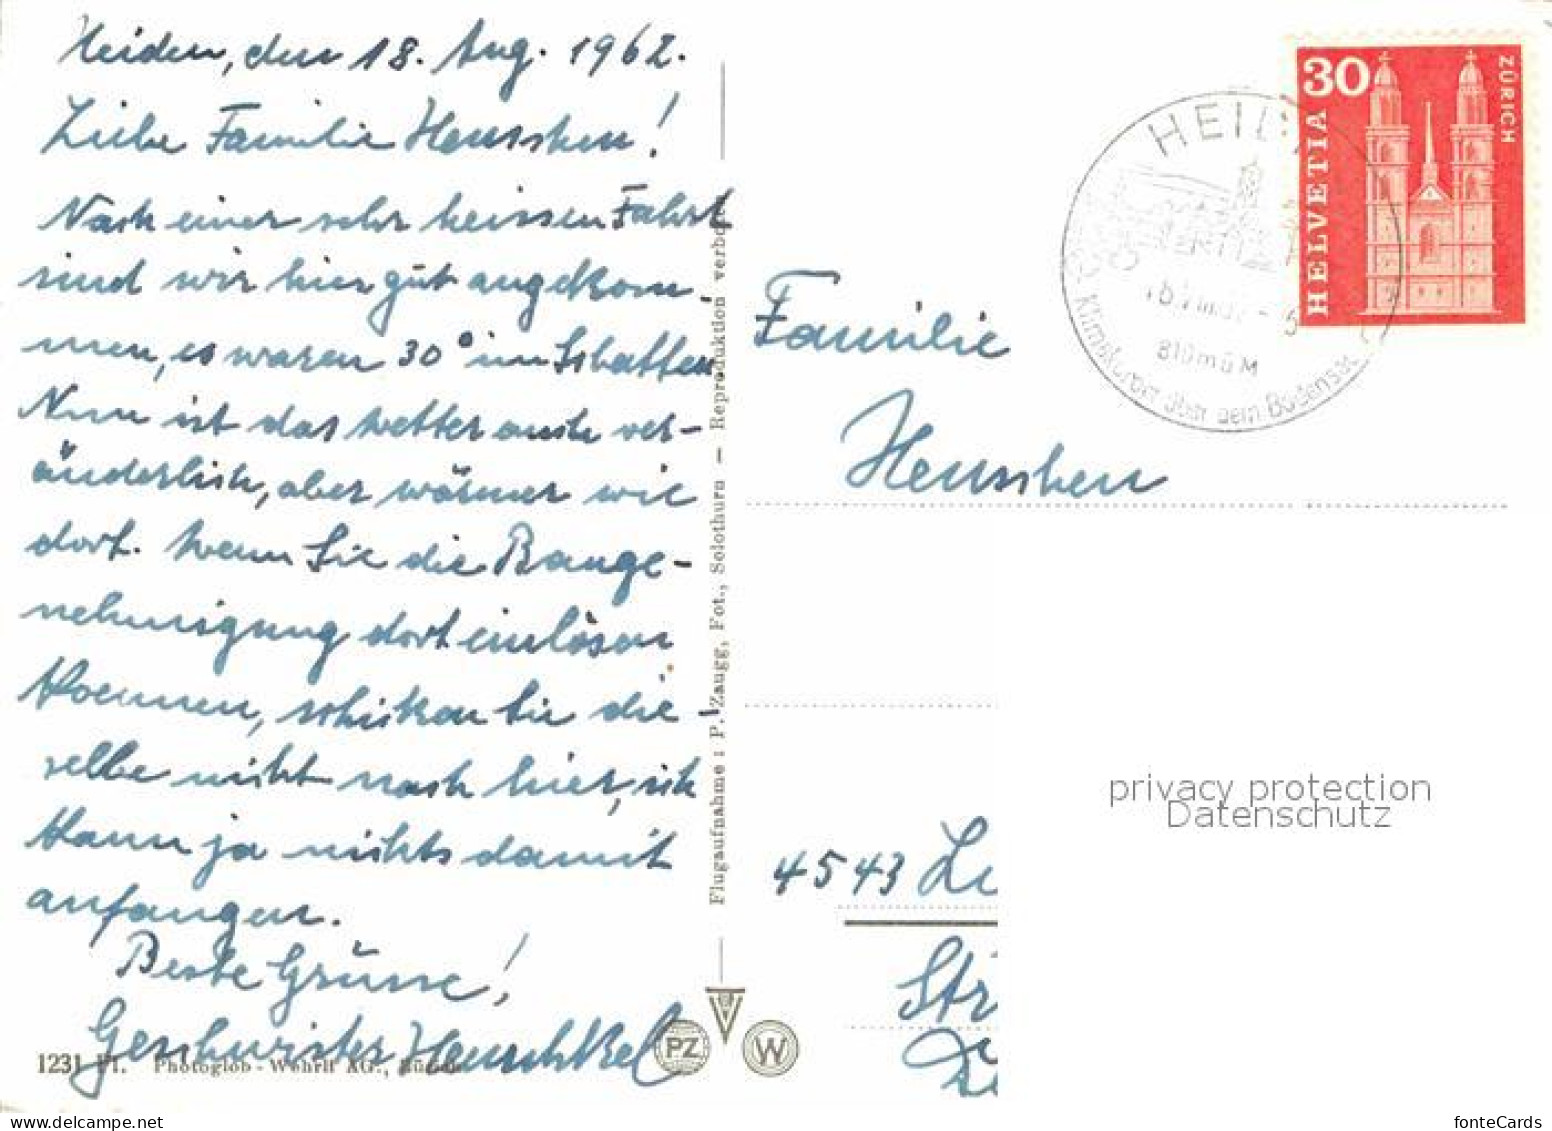 Heiden, den 18. Aug. 1962.
Liebe Familie Heusschen!
Nach einer sehr heissen Fahrt
sind wir hier gut angekom-
men, es waren 30° im Schatten
Nun ist das Wetter auch ver-
änderlich, aber wärmer wie
dort. Wenn Sie die Bauge-
nehmigung dort einlösen
koennen, schicken Sie die-
selbe nicht nach hier, ich
kann ja nichts damit
anfangen.
Beste Grüsse!
Geschwister
1231 Fl. Photoglob-Wehrli AG.,
Flugaufnahme: P. Zaugg, Fot., Solothurn — Reproduktion verbo
PZ
W
HELVETIA
30
ZÜRICH
HEID
810 m ü M
Klimakurort über dem Bodensee
Familie
Heusschen
4543 Li
Str
privacy protection
Datenschutz
fonteCards
www.delcampe.net